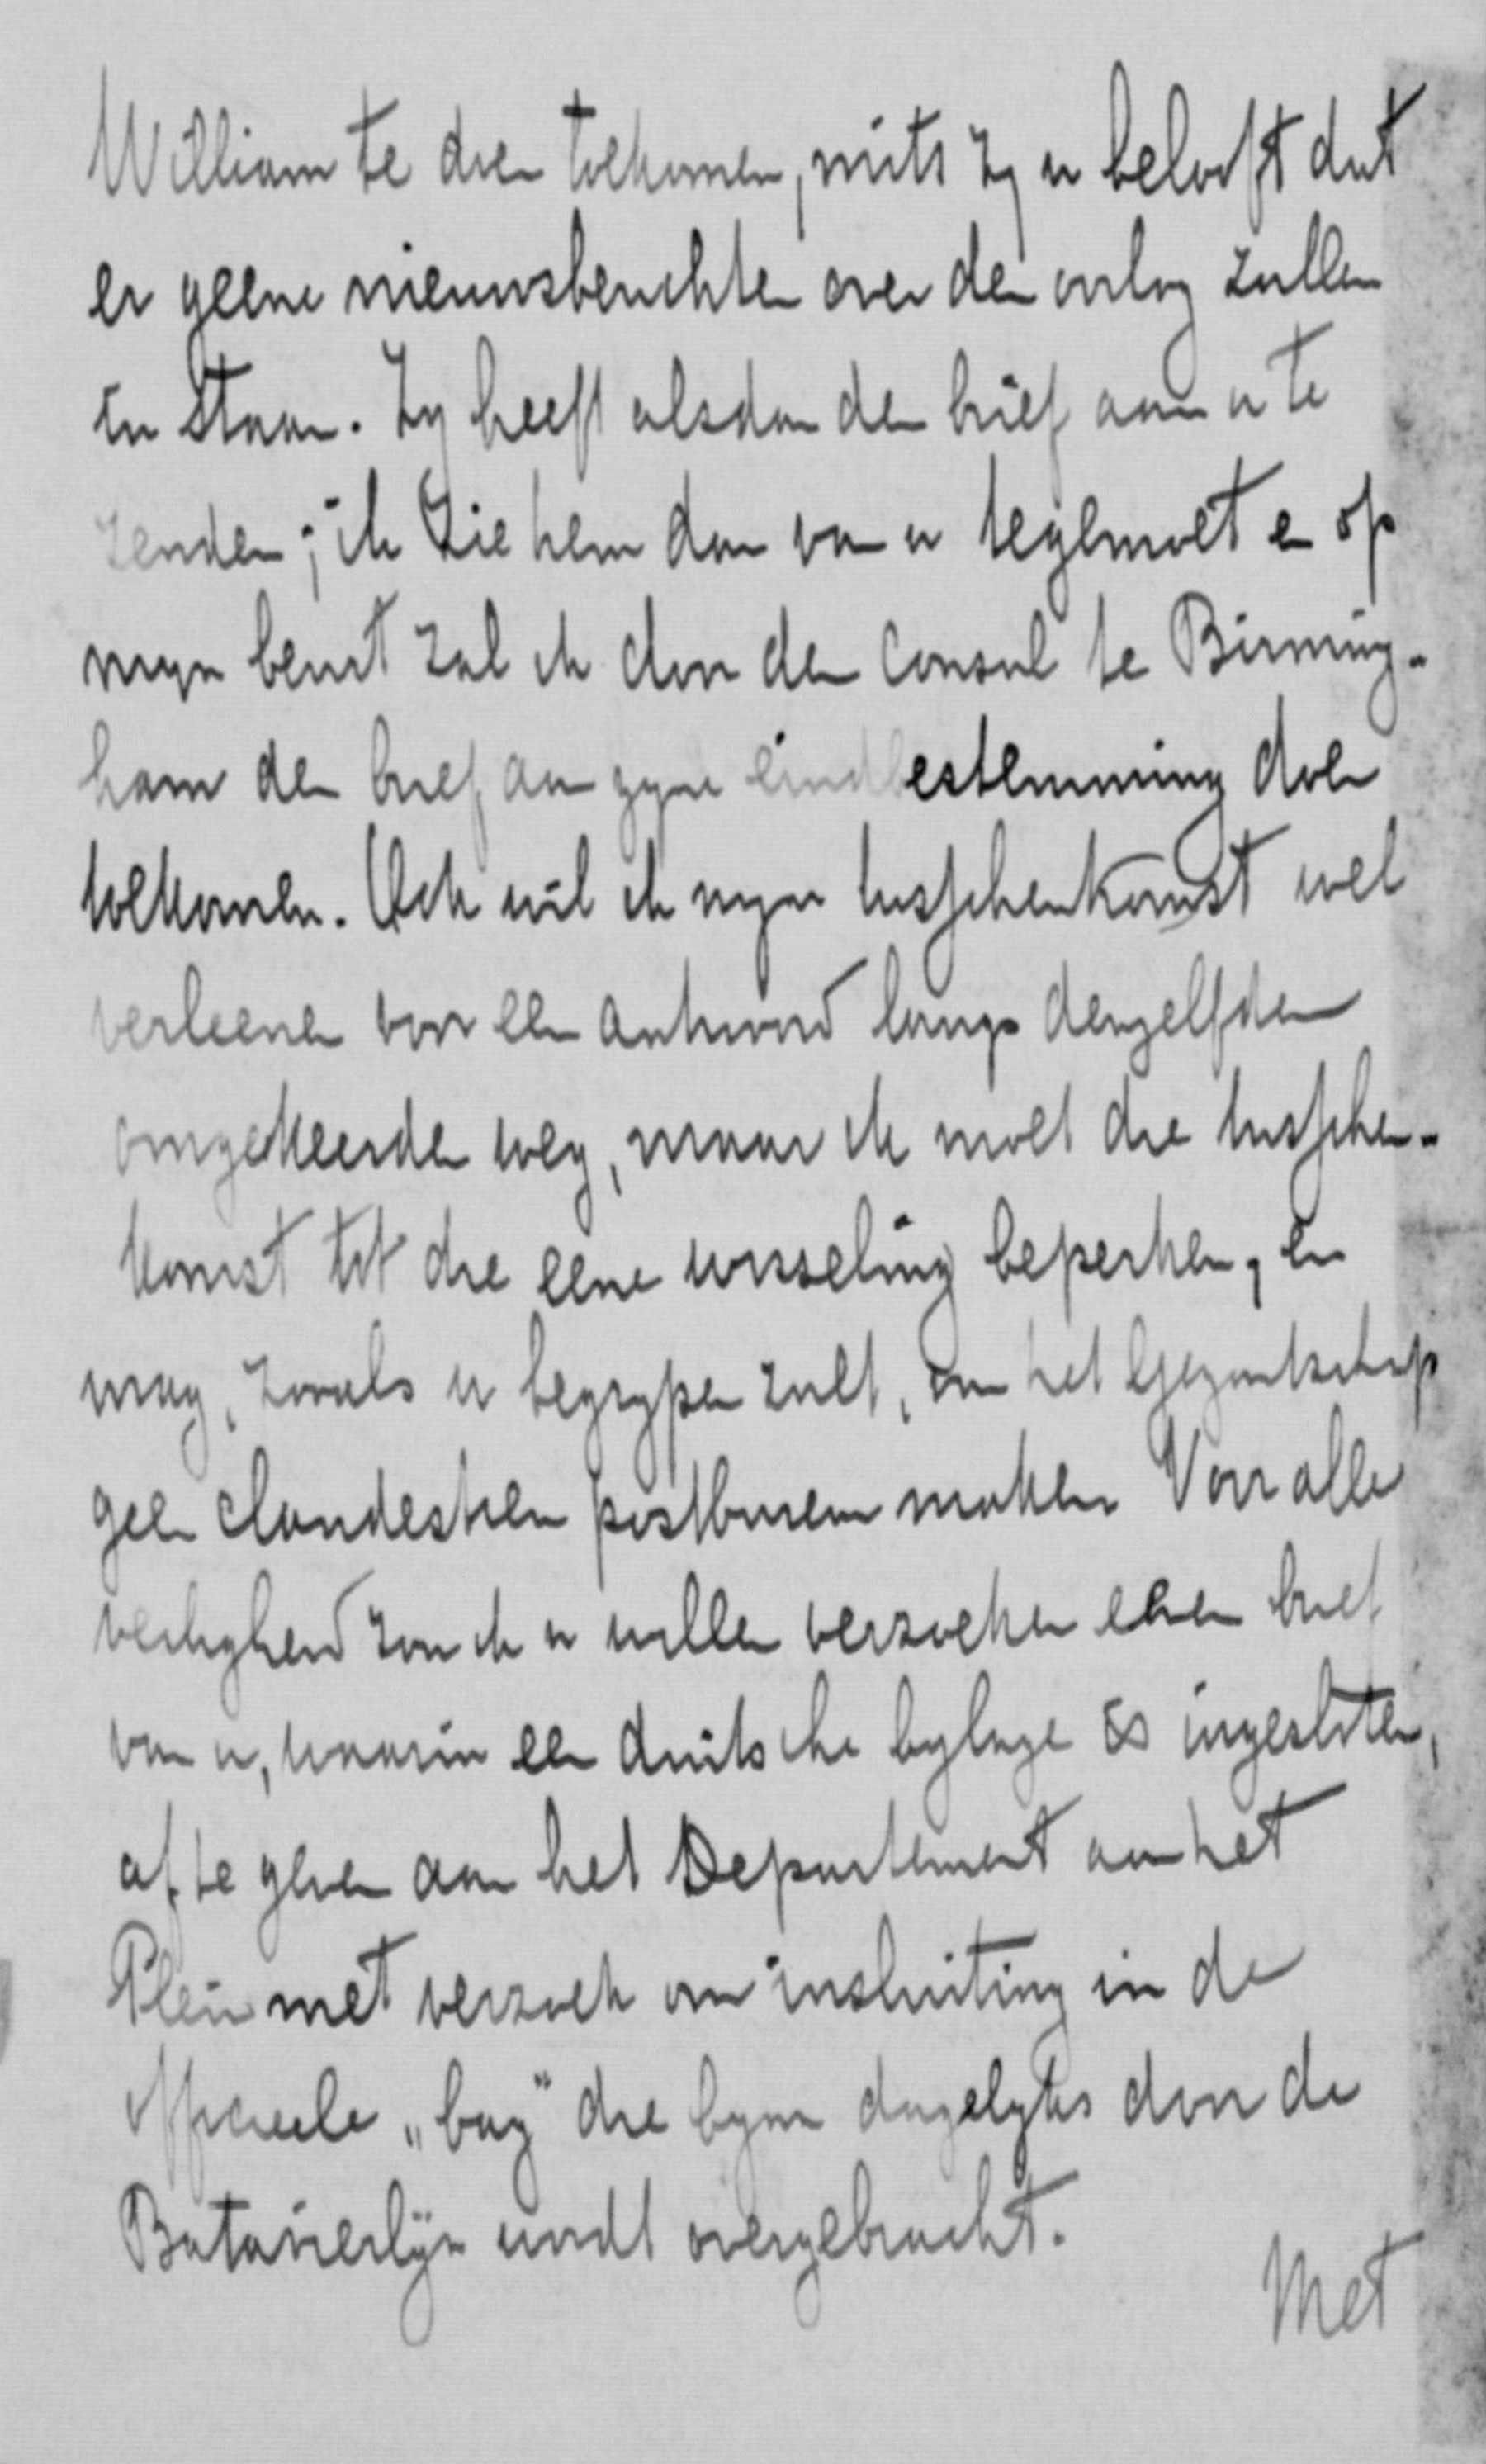 William te doen toekomen, mits zy u belooft dat
er geene nieuwsberichten over den oorlog zullen
in staan. Zy heeft alsdan den brief aan u te
zenden; ik zie hem dan van u tegemoet en op
myn beurt zal ik door den Consul te Birming-
ham den brief aan zyne eindbestemming doen
toekomen. Ook wil ik myne tusschenkomst wel
verleenen voor een antwoord langs denzelfden
omgekeerden weg, maar ik moet die tusschen-
komst tot die eene wisseling beperken, en
mag, zooals u begrypen zult, van het Gezantschap
geen clandestien postbureau maken. Voor alle
veiligheid zou ik u willen verzoeken elken brief
van u, waarin een duitsche bylage is ingesloten,
af te geven aan het Departement aan het
Plein met verzoek om insluiting in de
officieele „bag” die byna dagelyks door de
Batavierlijn wordt overgebracht.
Met